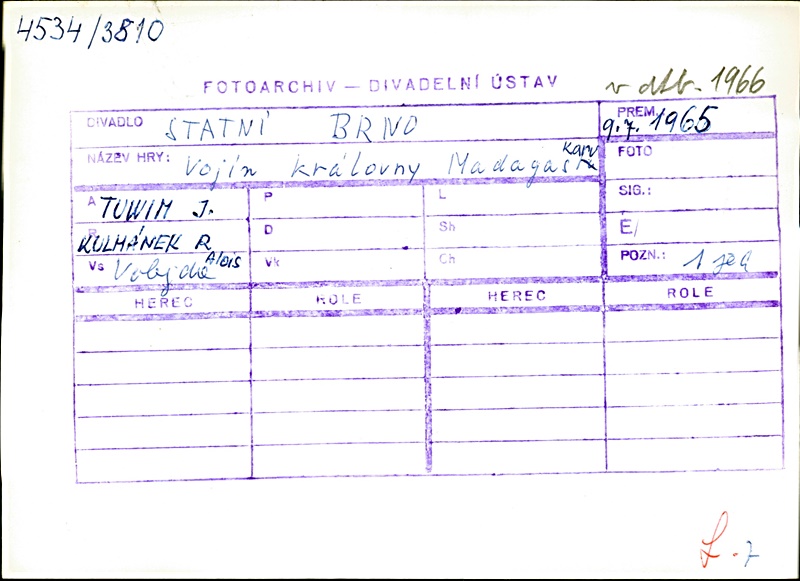 4534/3810
FOTOARCHIV — DIVADELNÍ ÚSTAV
v dtb. 1966
DIVADLO STÁTNÍ BRNO
PREM. 9.7. 1965
NÁZEV HRY: Vojín královny Madagaskaru
FOTO
A TUWIM J.
P
L
SIG.:
R KULHÁNEK R
D
Sh
É/
Vs Vobejda Alois
Vk
Ch
POZN.: 1
HEREC ROLE HEREC ROLE
7